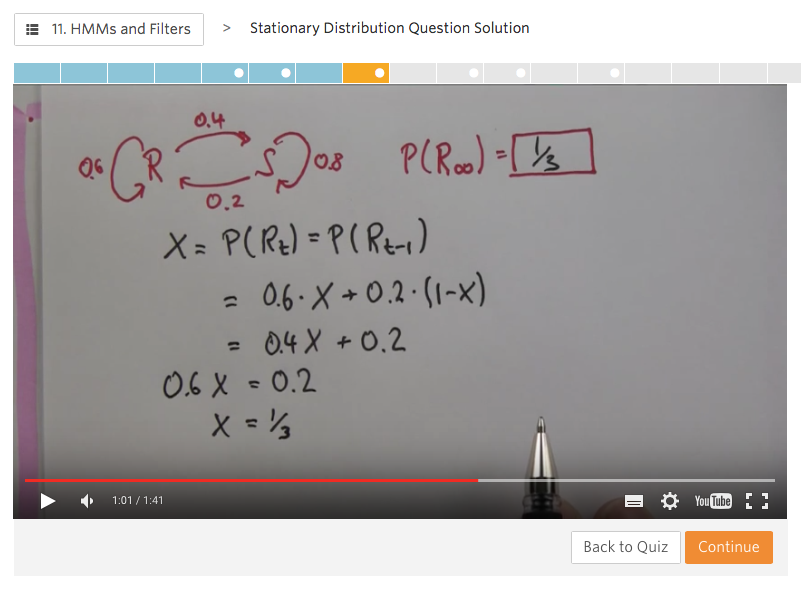 11. HMMs and Filters > Stationary Distribution Question Solution
0.4
0.6 R S 0.8 P(R∞) = 1/3
0.2
X = P(Rt) = P(Rt-1)
= 0.6 · X + 0.2 · (1-X)
= 0.4 X + 0.2
0.6 X = 0.2
X = 1/3
1:01 / 1:41 YouTube
Back to Quiz Continue